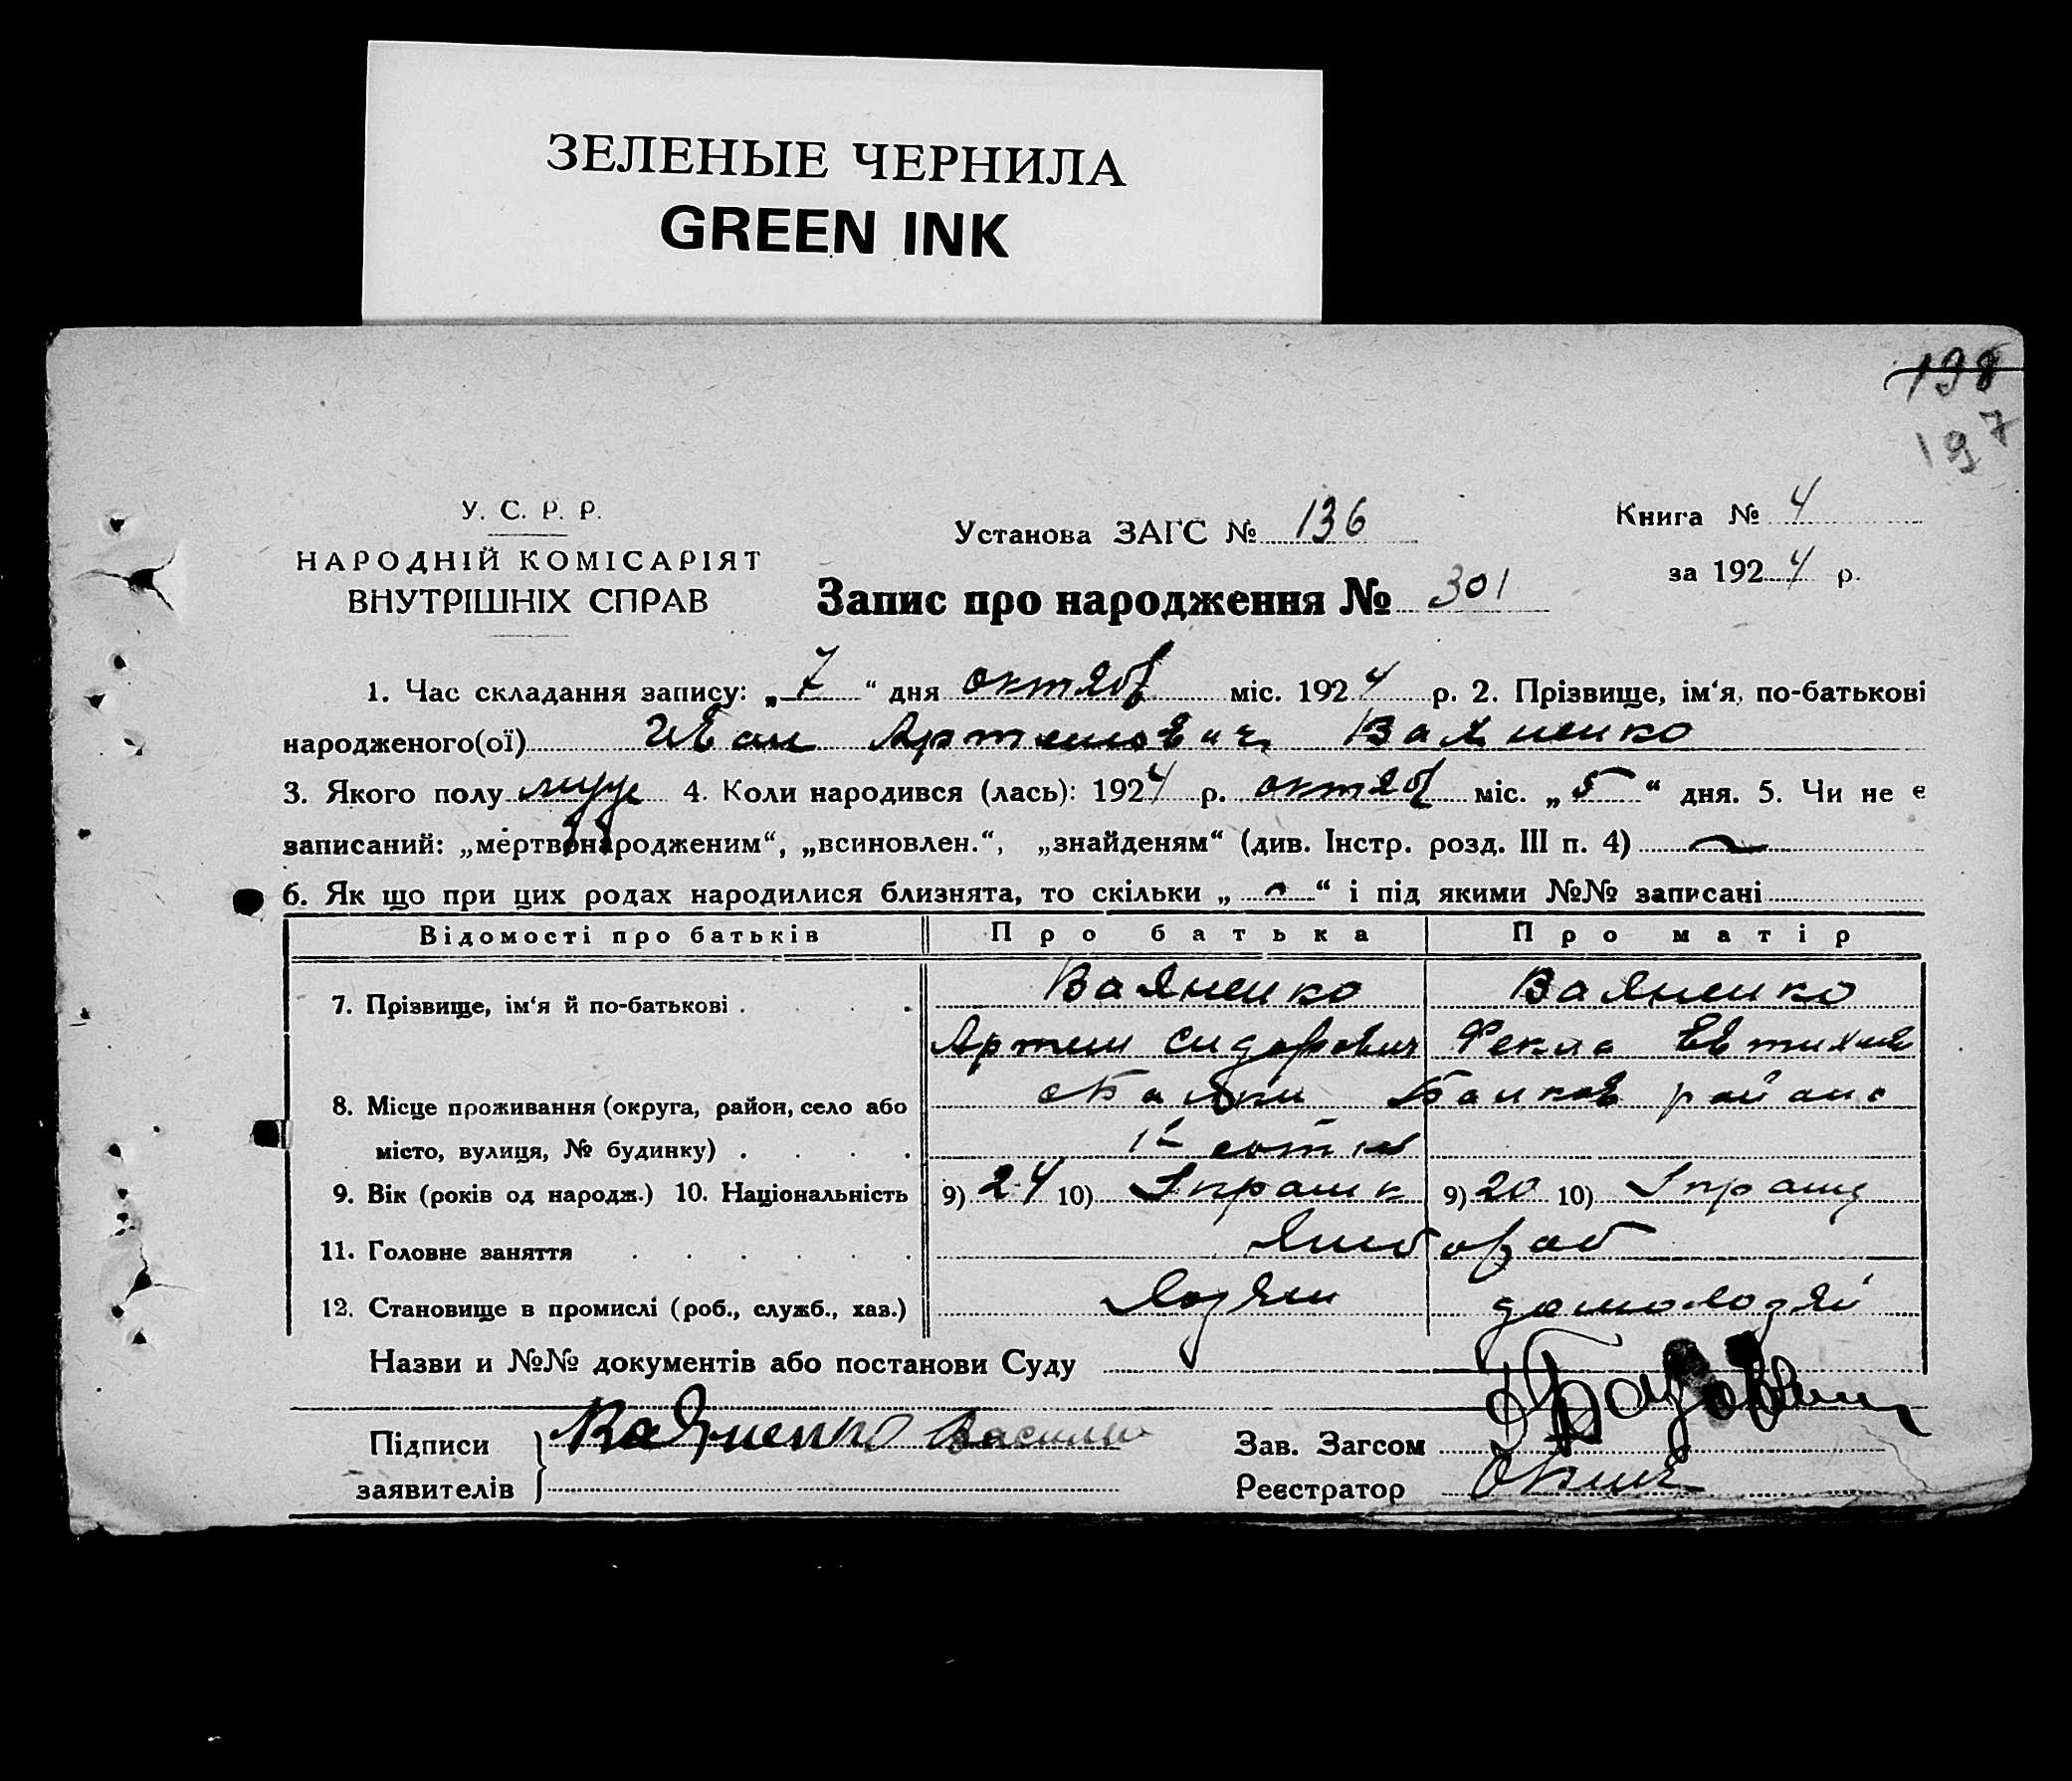 ЗЕЛЕНЫЕ ЧЕРНИЛА
GREEN INK
198
197
У. С. Р. Р.
НАРОДНІЙ КОМІСАРІЯТ
ВНУТРІШНІХ СПРАВ
Установа ЗАГС № 136
Книга № 4
за 1924 р.
Запис про народження № 301
1. Час складання запису: „7“ дня октяб міс. 1924 р. 2. Прізвище, ім‘я, по-батькові
народженого(ої) Иван Артемович Ваяненко
3. Якого полу муж 4. Коли народився (лась): 1924 р. октяб міс. „5“ дня. 5. Чи не є
записаний: „мертвонародженим“, „всиновлен.“, „знайденям“ (див. Інстр. розд. III п. 4)
6. Як що при цих родах народилися близнята, то скільки „ “ і під якими №№ записані
Відомості про батьків Про батька Про матір
7. Прізвище, ім‘я й по-батькові . Ваяненко Ваяненко
Артем Сидорович Фекла Евтихие
8. Місце проживання (округа, район, село або района
місто, вулиця, № будинку)
9. Вік (років од народж.) 10. Національність 9) 24 10) 9) 20 10)
11. Головне заняття хлебораб
12. Становище в промислі (роб., служб., хаз.) хозяин домохозяй
Назви и №№ документів або постанови Суду
Підписи Ваяненко Зав. Загсом
заявителів Реєстратор